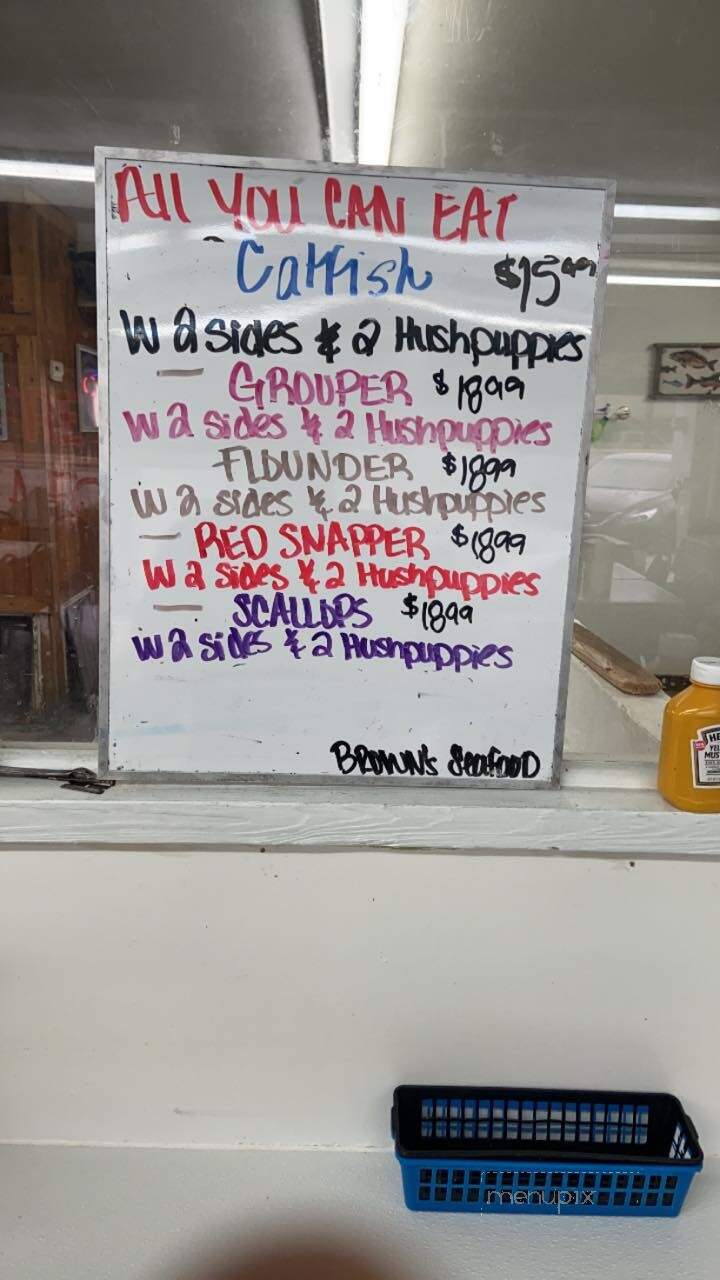 All YOU CAN EAT
Catfish $15.99
W 2 sides & 2 Hushpuppies
GROUPER $18.99
W 2 sides & 2 Hushpuppies
FLOUNDER $18.99
W 2 sides & 2 Hushpuppies
RED SNAPPER $18.99
W 2 sides & 2 Hushpuppies
SCALLOPS $18.99
W 2 sides & 2 Hushpuppies
BROWN's SeafOOD
menupix